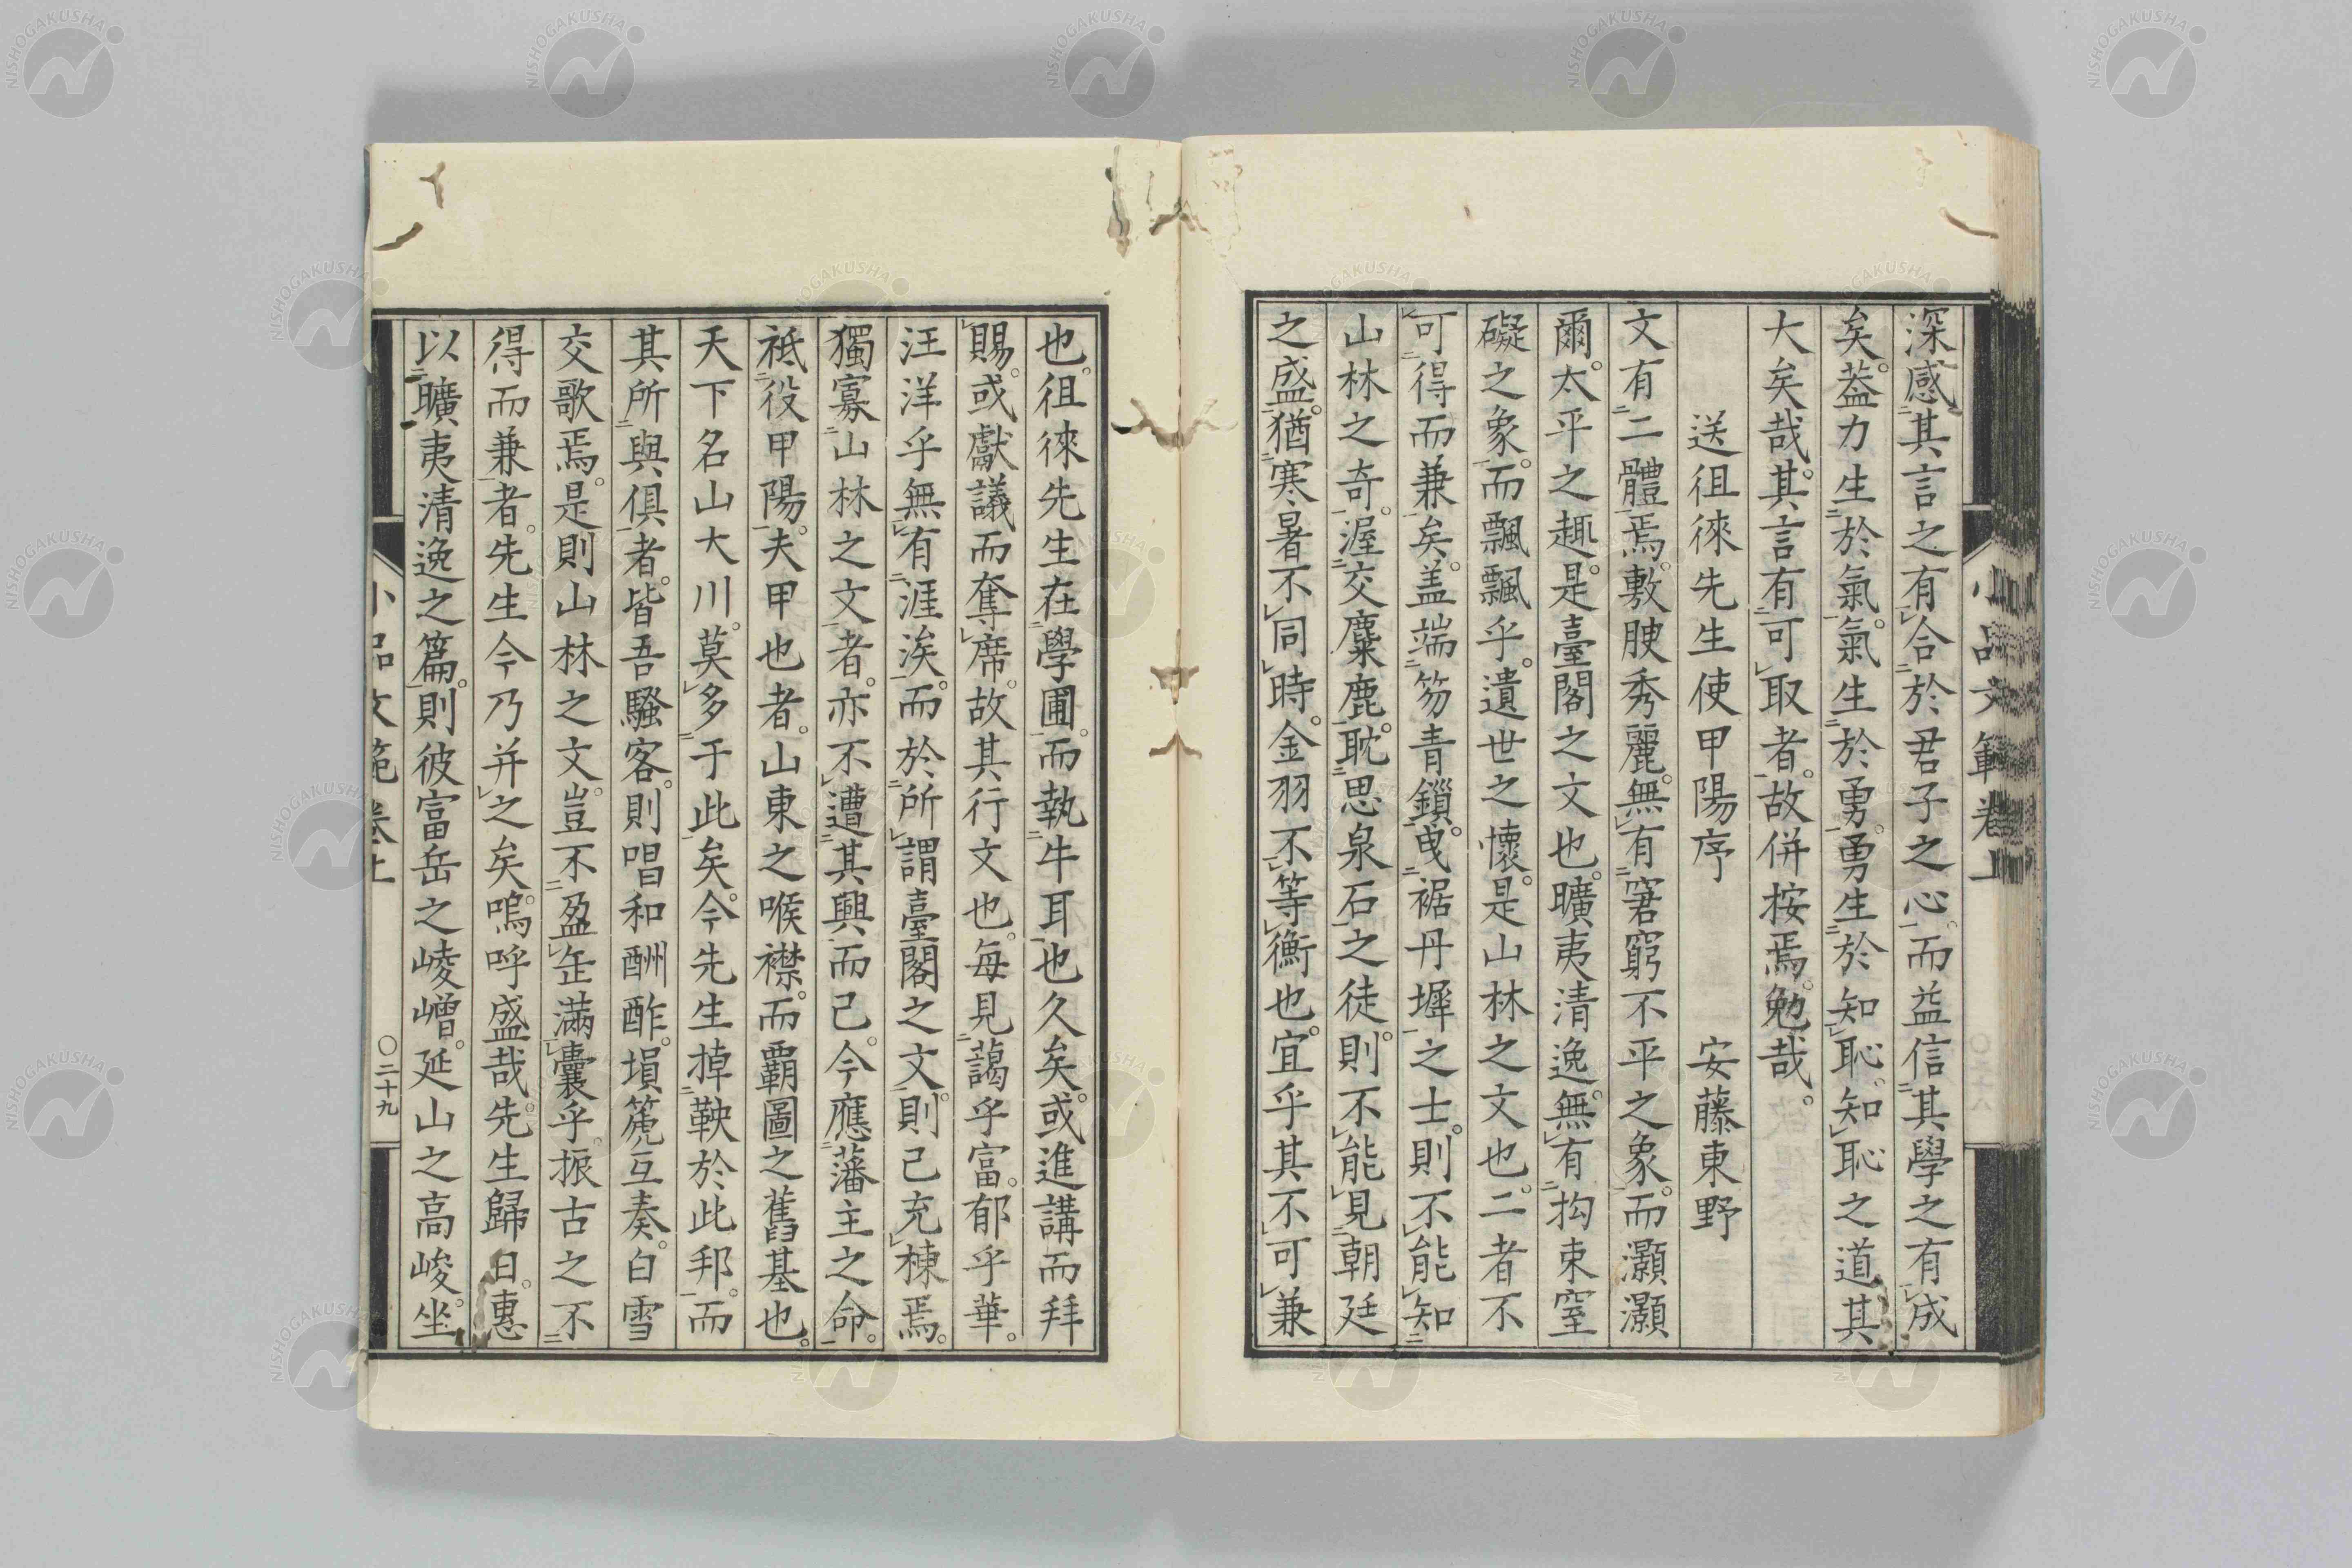 小品文範卷上
深感其言之有合於君子之心。而益信其學之有成
矣。葢力生於氣。氣生於勇。勇生於知恥。知恥之道其
大矣哉。其言有可取者。故併按焉。勉哉。
送徂徠先生使甲陽序 安藤東野
文有二體焉。敷腴秀麗。無有窘窮不平之象。而灝灝
爾。太平之趣。是臺閣之文也。曠夷清逸。無有拘束窒
礙之象。而飄飄乎。遺世之懷。是山林之文也。二者不
可得而兼矣。盖端笏青鎖。曵裾丹墀之士。則不能知
山林之奇。渥交麋鹿。耽思泉石之徒。則不能見朝廷
之盛。猶寒暑不同時。金羽不等衡也。宜乎其不可兼
也。徂徠先生在學圃。而執牛耳也久矣。或進講而拜
賜。或獻議而奪席。故其行文也。每見藹乎富。郁乎華。
汪洋乎無有涯涘。而於所謂臺閣之文。則己充棟焉。
獨寡山林之文者。亦不遭其興而己。今應藩主之命。
祗役甲陽。夫甲也者。山東之喉襟。而覇圖之舊基也。
天下名山大川。莫多于此矣。今先生掉鞅於此邦。而
其所與俱者。皆吾騷客。則唱和酬酢。塤篪互奏。白雪
交歌焉。是則山林之文。豈不盈缶滿囊乎。振古之不
得而兼者。先生今乃并之矣。嗚呼盛哉。先生歸日。惠
以曠夷清逸之篇。則彼富岳之崚嶒。延山之高峻。坐
小品文範卷上 〇二十九
NISHOGAKUSHA